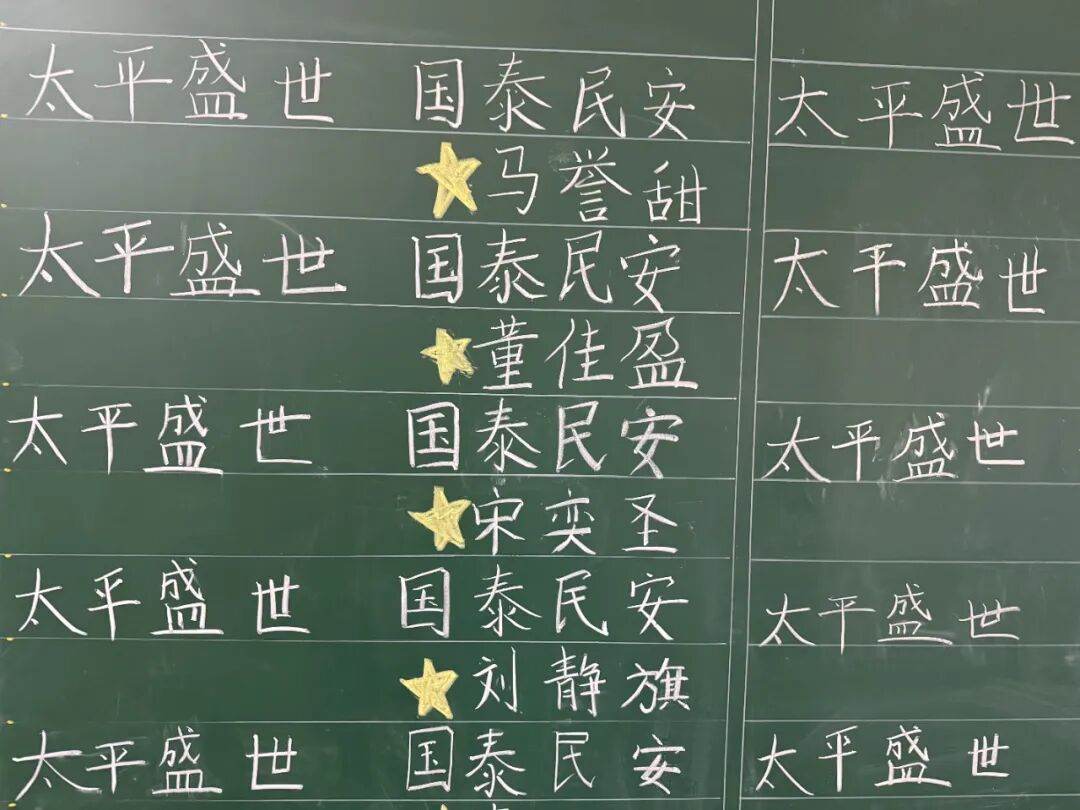 太平盛世 国泰民安 太平盛世
马誉甜
太平盛世 国泰民安 太平盛世
董佳盈
太平盛世 国泰民安 太平盛世
宋奕圣
太平盛世 国泰民安 太平盛世
刘静旗
太平盛世 国泰民安 太平盛世